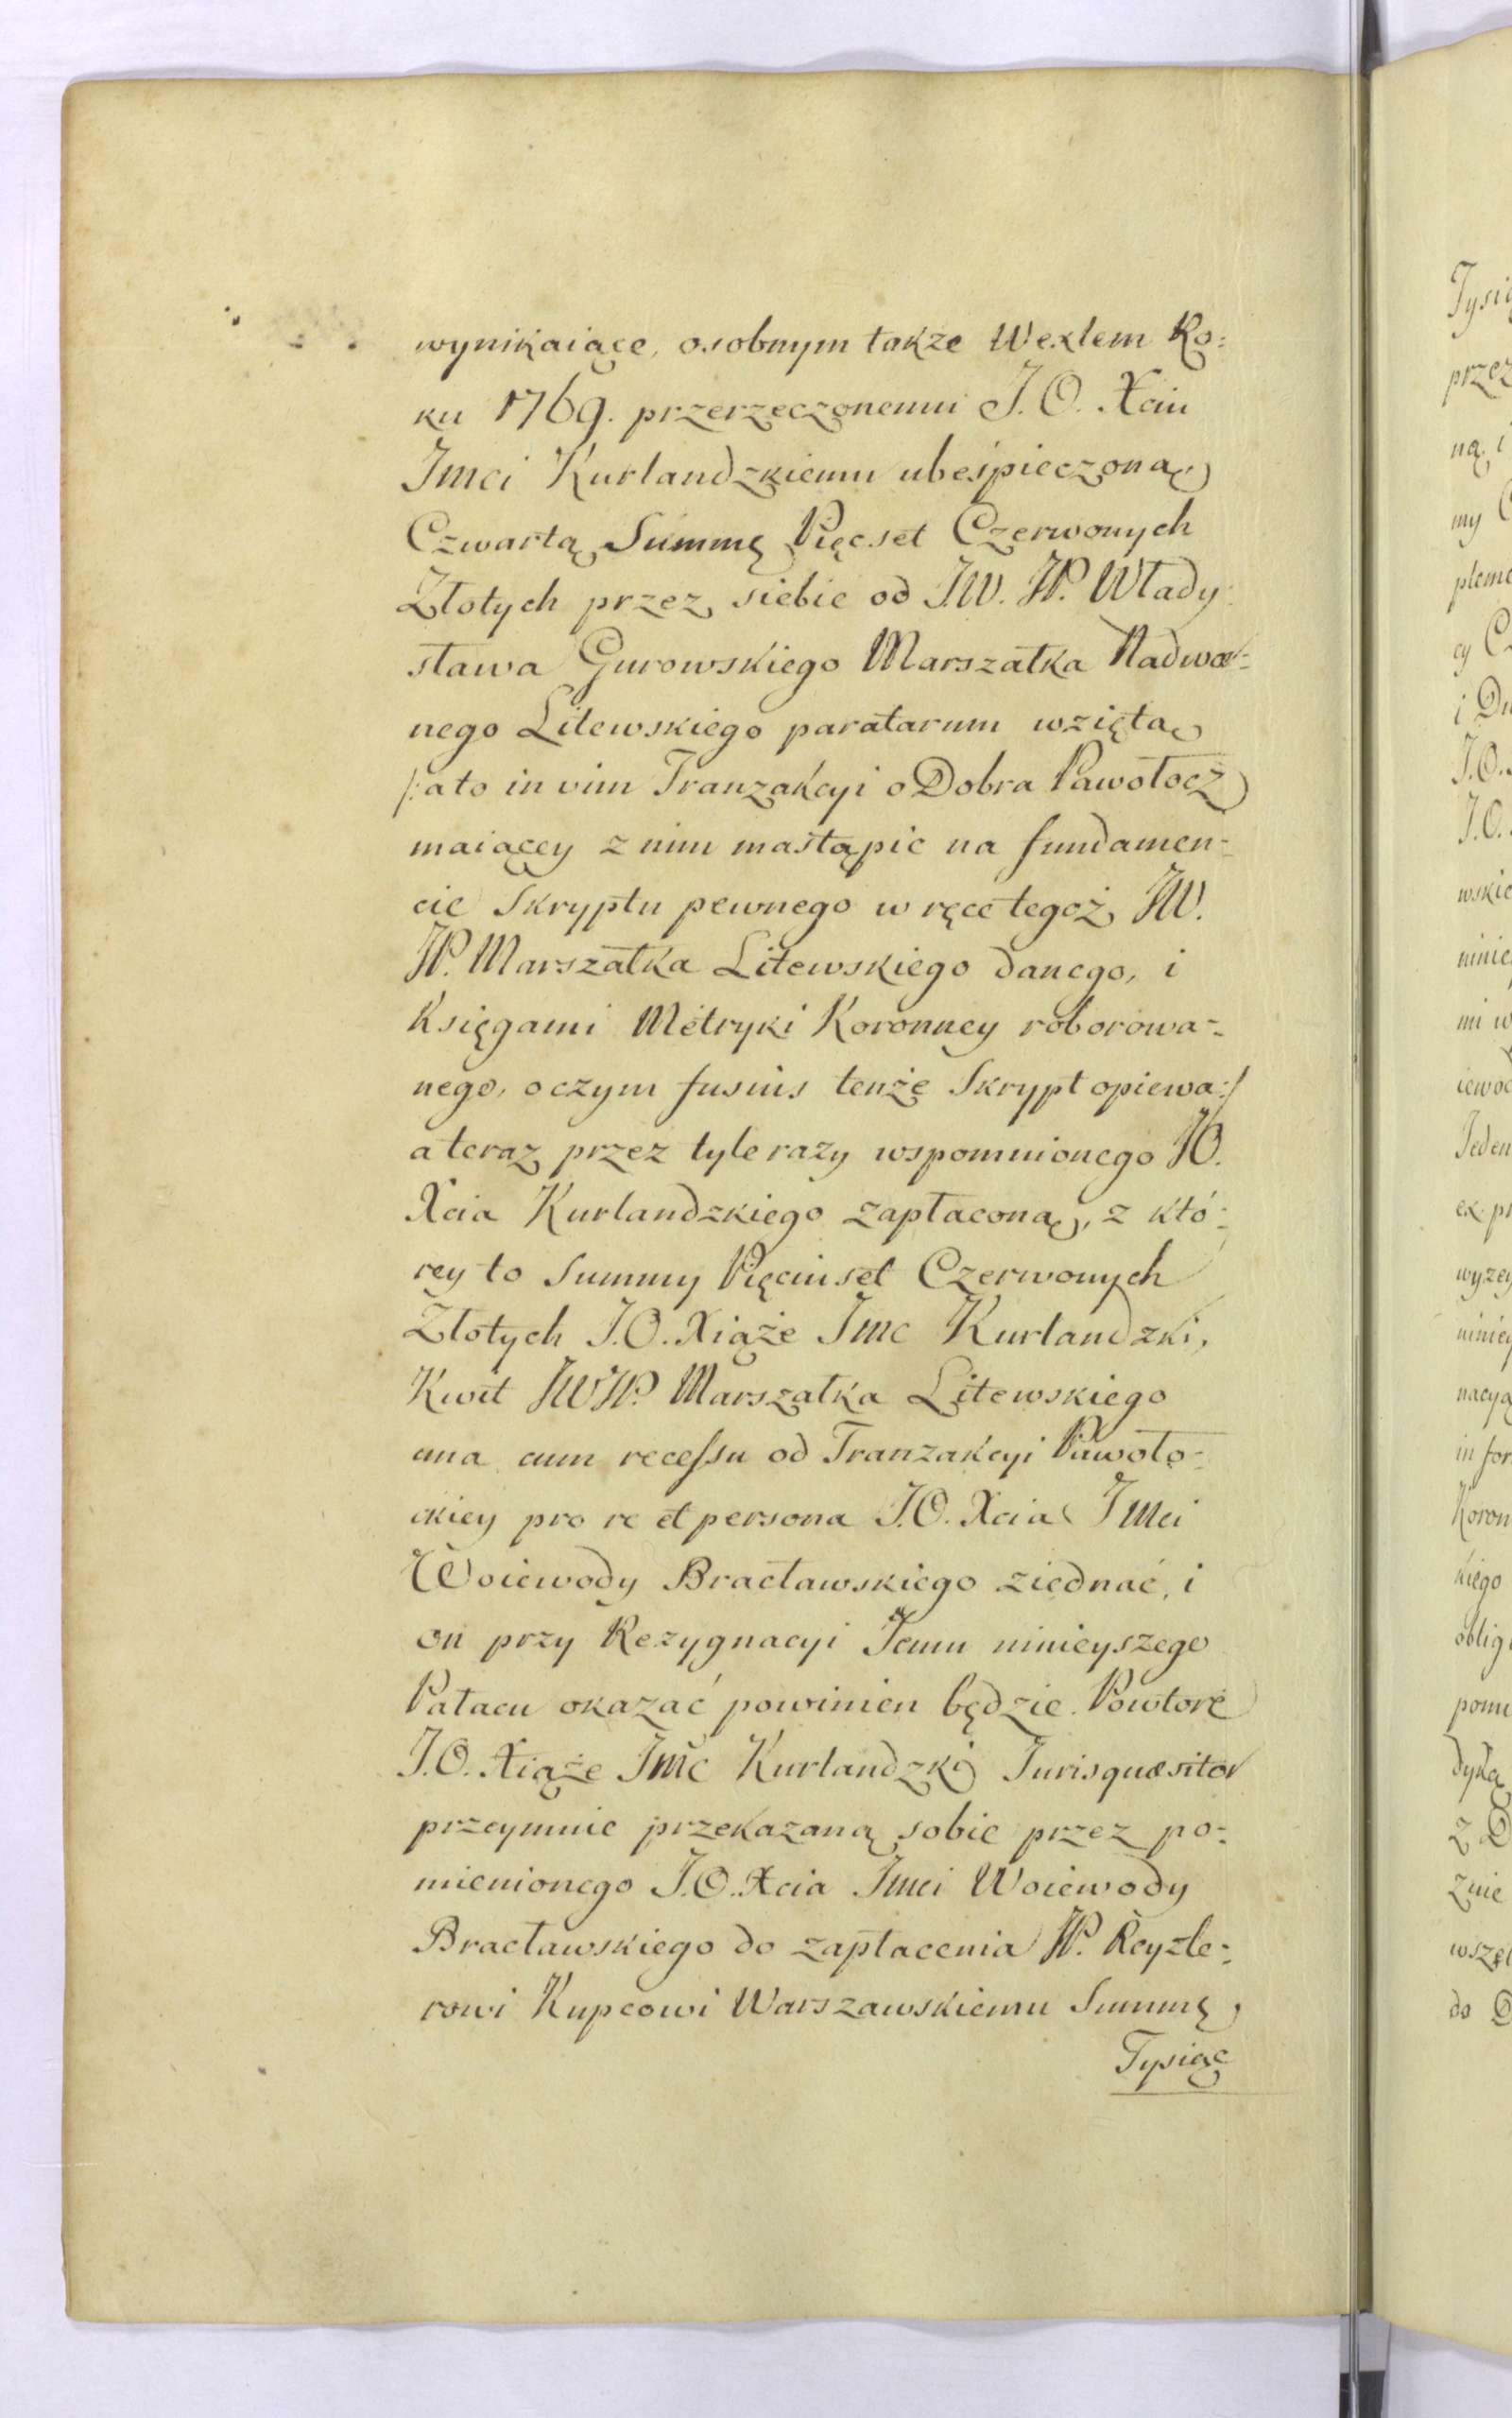 wynikaiące, osobnym także Wexlem Ro:
ku 1769. przerzeczonemu J.O. Xciu
Jmci Kurlandzkiemu ubeśpieczoną,
Czwartą Summę Pięcset Czerwonych
Złotych przez siebie od J.W. JP. Włady:
sława Gurowskiego Marszałka Nadwor:
nego Litewskiego paratarum wziętą
/: a to in vim Tranzakcyi o Dobra Pawołocz
maiącey z nim nastąpić na fundamen:
cie Skryptu pewnego w ręce tegoż JW.
JP. Marszałka Litewskiego danego, i
Księgami Metryki Koronney roborowa:
nego, o czym fusius tenże Skrypt opiewa :/
a teraz przez tyle razy wspomnionego JO.
Xcia Kurlandzkiego zapłaconą, z któ:
rey to Summy Pięciuset Czerwonych
Złotych J.O. Xiąże Jmc Kurlandzki,
Kwit JWJP. Marszałka Litewskiego
una cum recessu od Tranzakcyi Pawoło:
ckiey pro re et persona J.O. Xcia Jmci
Woiewody Bracławskiego ziednać, i
on przy Rezygnacyi Jemu ninieyszego
Pałacu okazać powinien będzie. Powtore
J.O. Xiąże Jmc Kurlandzki Jurisquæsitor
przeymuie przekazaną sobie przez po:
mienionego J.O. Xcia Jmci Woiewody
Bracławskiego do zapłacenia JP. Reyzle:
rowi Kupcowi Warszawskiemu Summę
Tysiąc